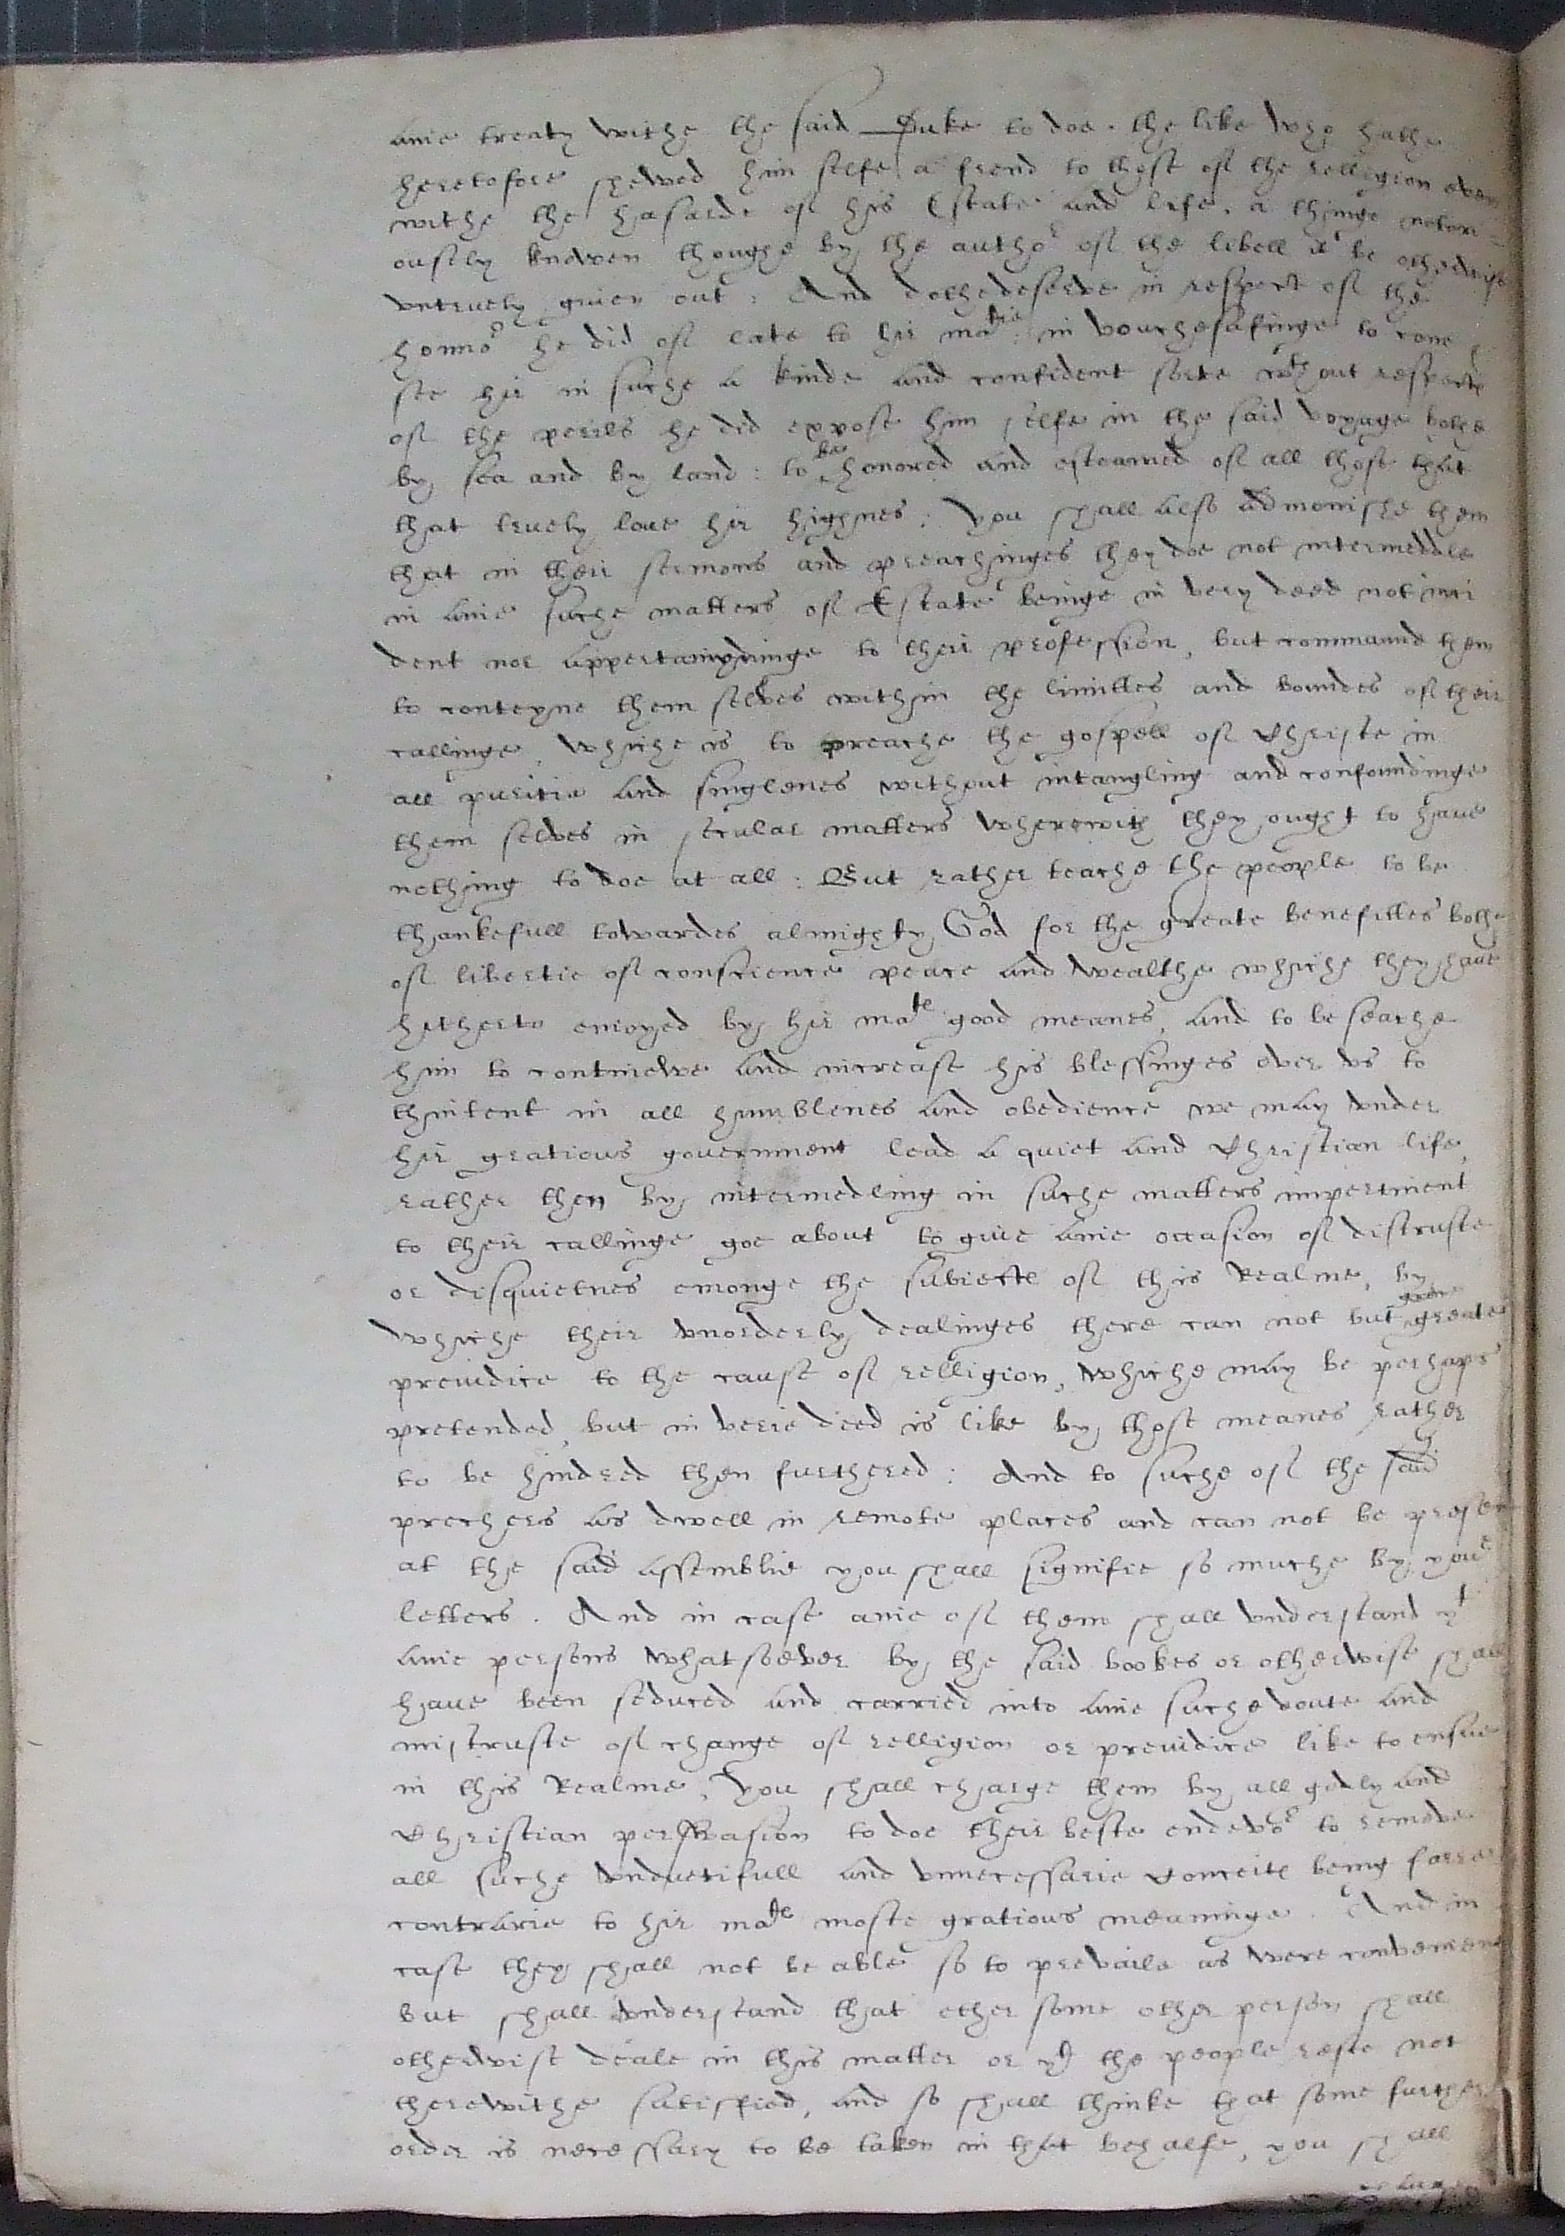 anie treaty withe the said Duke to doe the like who hathe
heretofore shewed him selfe a frend to those of the relligion even
withe the hasarde of his Estate and life, a thinge notori=
ously knowen thoughe by the autho^r of the libell it be otherwise
vntruely given out : And dothe deserve in respect of the
honno^r he did of late to hir ma^tie: in vouchesafinge to come
see hir in suche a kinde and confident sorte w^thout respecte
of the perrils he did expose him selfe in the said voyage bothe
by sea and by land : to be honored and esteamed of all those that
that truely love hir highnes : You shall also admonishe them
that in their sermons and preachinges they doe not intermeddle
in anie suche matters of Estate beinge in very deed not inci
dent nor appertayninge to their profession, but commaund them
to conteyne them selves within the limittes and boundes of their
callinge, whiche is to preache the gospell of Christe in
all puritie and singlenes without intangling and confoundinge
them selves in secular matters wherewith they ought to have
nothing to doe at all : But rather teache the people to be
thankefull towardes almighty God for the greate benefittes bothe
of libertie of conscience peace and wealthe whiche they have
hitherto enioyed by hir ma^te good meanes, and to beseache
him to continewe and increase his blessinges over vs to
thintent in all humblenes and obedience we may vnder
hir gratious government lead a quiet and Christian life,
rather then by intermedling in suche matters impertinent
to their callinge goe about to give anie occasion of distruste
or disquietnes emonge the subiecte of this Realme, by
whiche their vnorderly dealinges there can not but grow greate
preiudice to the cause of relligion, whiche may be perhaps
pretended, but in verie deed is like by those meanes rather
to be hindred then furthered : And to suche of the said
prechers as dwell in remote places and can not be present
at the said assemblie you shall signifie so muche by you^r
letters. And in case anie of them shall vnderstand y^t
anie persons whatsoever by the said bookes or otherwise shall
have been seduced and carried into anie suche doute and
mistruste of change of relligion or preiudice like to ensue
in this Realme, you shall charge them by all godly and
Christian perswasion to doe their beste endevo^r to remove
all suche vnduetifull and vnnecessarie conceite being farre
contrarie to hir ma^te moste gratious meaninge. And in
case they shall not be able so to prevaile as were convenient
but shall vnderstand that ether some other person shall
otherwise deale in this matter or y^t the people reste not
therewithe satisfied, and so shall thinke that some further
order is necessary to be taken in that behalfe, you shall